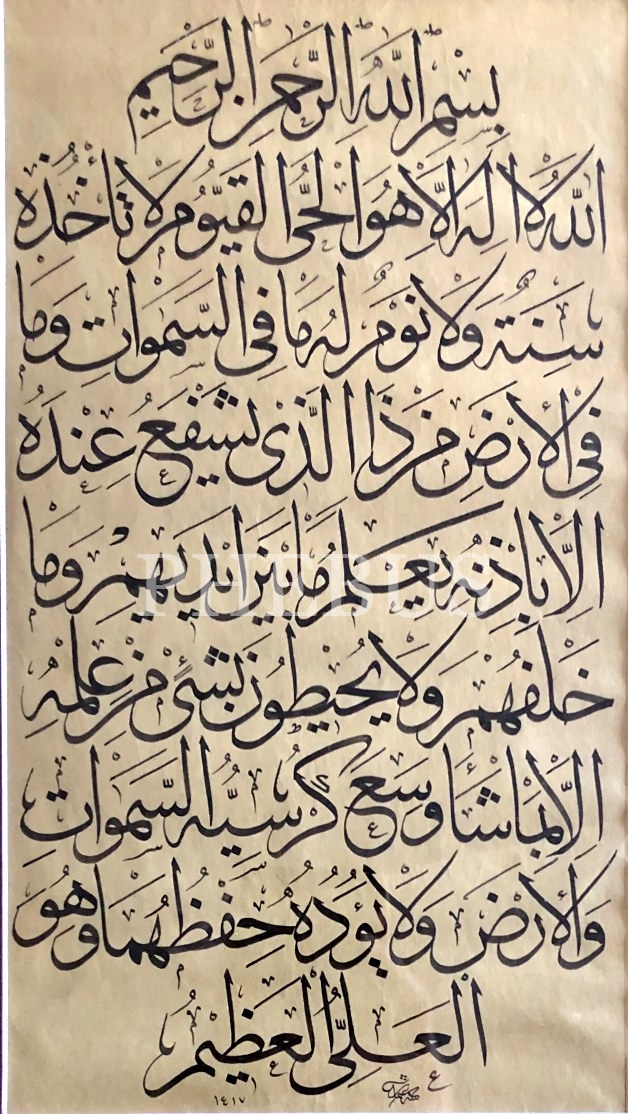 بسم الله الرحمن الرحيم
الله لا اله الا هو الحي القيوم لا تأخذه
سنة ولا نوم له ما في السموات وما
في الأرض من ذا الذي يشفع عنده
الا بإذنه يعلم ما بين ايديهم وما
PHEBUS
خلفهم ولا يحيطون بشئ من علمه
الا بما شآء وسع كرسيه السموات
والأرض ولا يؤده حفظهما وهو
العلي العظيم
١٤١٧